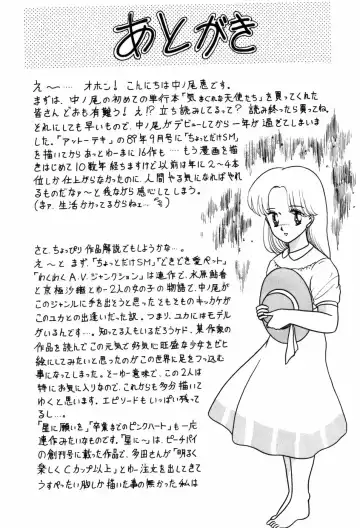 あとがき
え〜 オホン! こんにちは中ノ尾恵です。
まずは、中ノ尾の初めての単行本「気まぐれな天使たち」を買ってくれた
皆さんどおも有難う! え!? 立ち読みしてるって? 読み終ったら買ってね。
それにしても早いもので、中ノ尾がデビューしてから一年が過ぎてしまいま
した。「アットーテキ」の'89年9月号に「ちょっとだけSM」
を描いてからあっとゆーまに16作も… もう漫画を描き
はじめて10数年経ちますけど以前は年に2〜4本
位しか仕上がらなかったのに、人間やる気になればやれ
るものだなァ〜と我ながら感心してしまう。
(まァ、生活かかってるからねェ…)
さて、ちょっぴり作品解説でもしようかな…。
え〜と まず、「ちょっとだけSM」「どきどき愛ペット」
「わくわくA.V.ジャンクション」は連作で、水原鮎香
と京極沙織とゆー2人の女の子の物語で、中ノ尾が
このジャンルに手を出そうと思ったそもそものキッカケが
このユカとの出逢いだった訳。つまり、ユカにはモデルが
がいるんです…。知ってる人もいるだろうケド、某作家の
作品を読んでこの元気で好気心旺盛な少女をぜヒ
絵にしてみたいと思ったのがこの世界に足をつっ込む
事になりました。とーゆー意味で、この2人は
特にお気に入りなので、これからも多分描いて
ゆくと思います。エピソードもいっぱい残ってる
るし…。
「星に願いを」「卒業までのピンクハート」も一応
連作みたいなものです。「星に〜」は、ピーチパイ
の創刊号に載った作品で、多田さんが「明るく
楽しくCカップ以上」とゆー注文を出してきて
うすぺったい胸しか描いた事の無かった私は